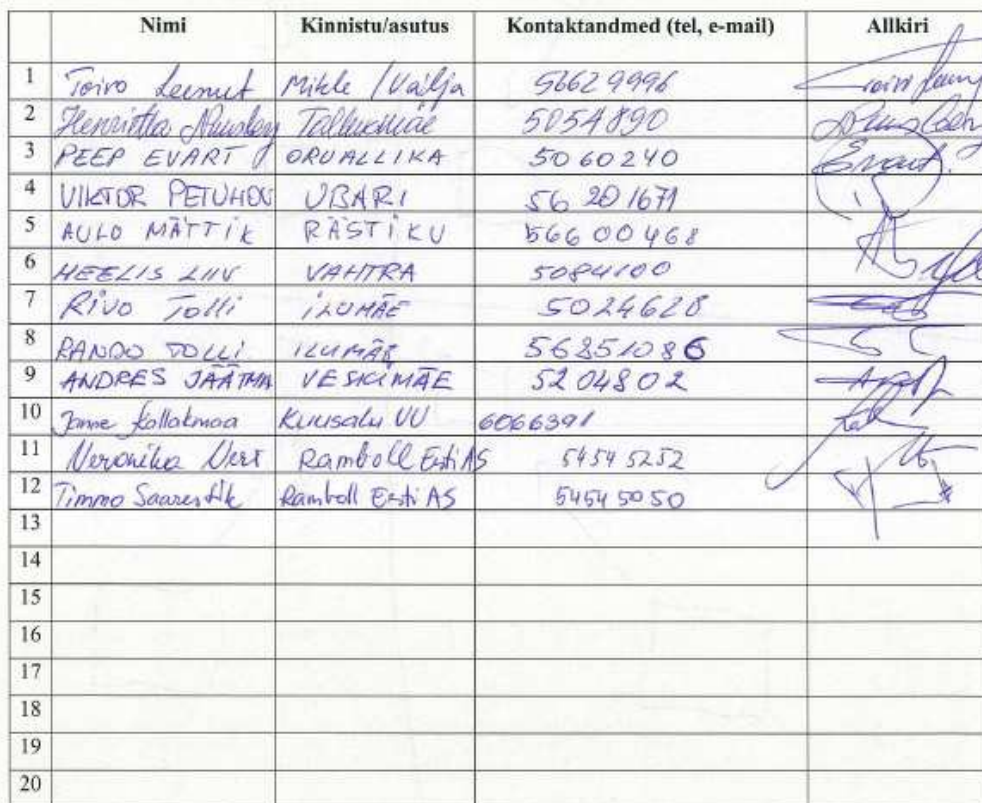 Nimi Kinnistu/asutus Kontaktandmed (tel, e-mail) Allkiri
1 Toivo Leemet Mikle / Välja 56629996
2 Henrietta 5054890
3 PEEP EVART ORUALLIKA 5060240 Evart.
4 VIKTOR PETUHOV UBARI 56 201671
5 AULO MÄTTIK RÄSTIKU 56600468
6 HEELIS LIIV VAHTRA 5084100
7 Rivo Tolli ILUMÄE 5024628
8 RANDO TOLLI ILUMÄE 56851086
9 ANDRES JÄÄTMA VESKIMÄE 5204802
10 Janne Kallakmaa Kuusalu VV 6066391
11 Veronika Verš Ramboll Eesti AS 5454 5252
12 Timmo Saarestik Ramboll Eesti AS 5454 5050
13
14
15
16
17
18
19
20